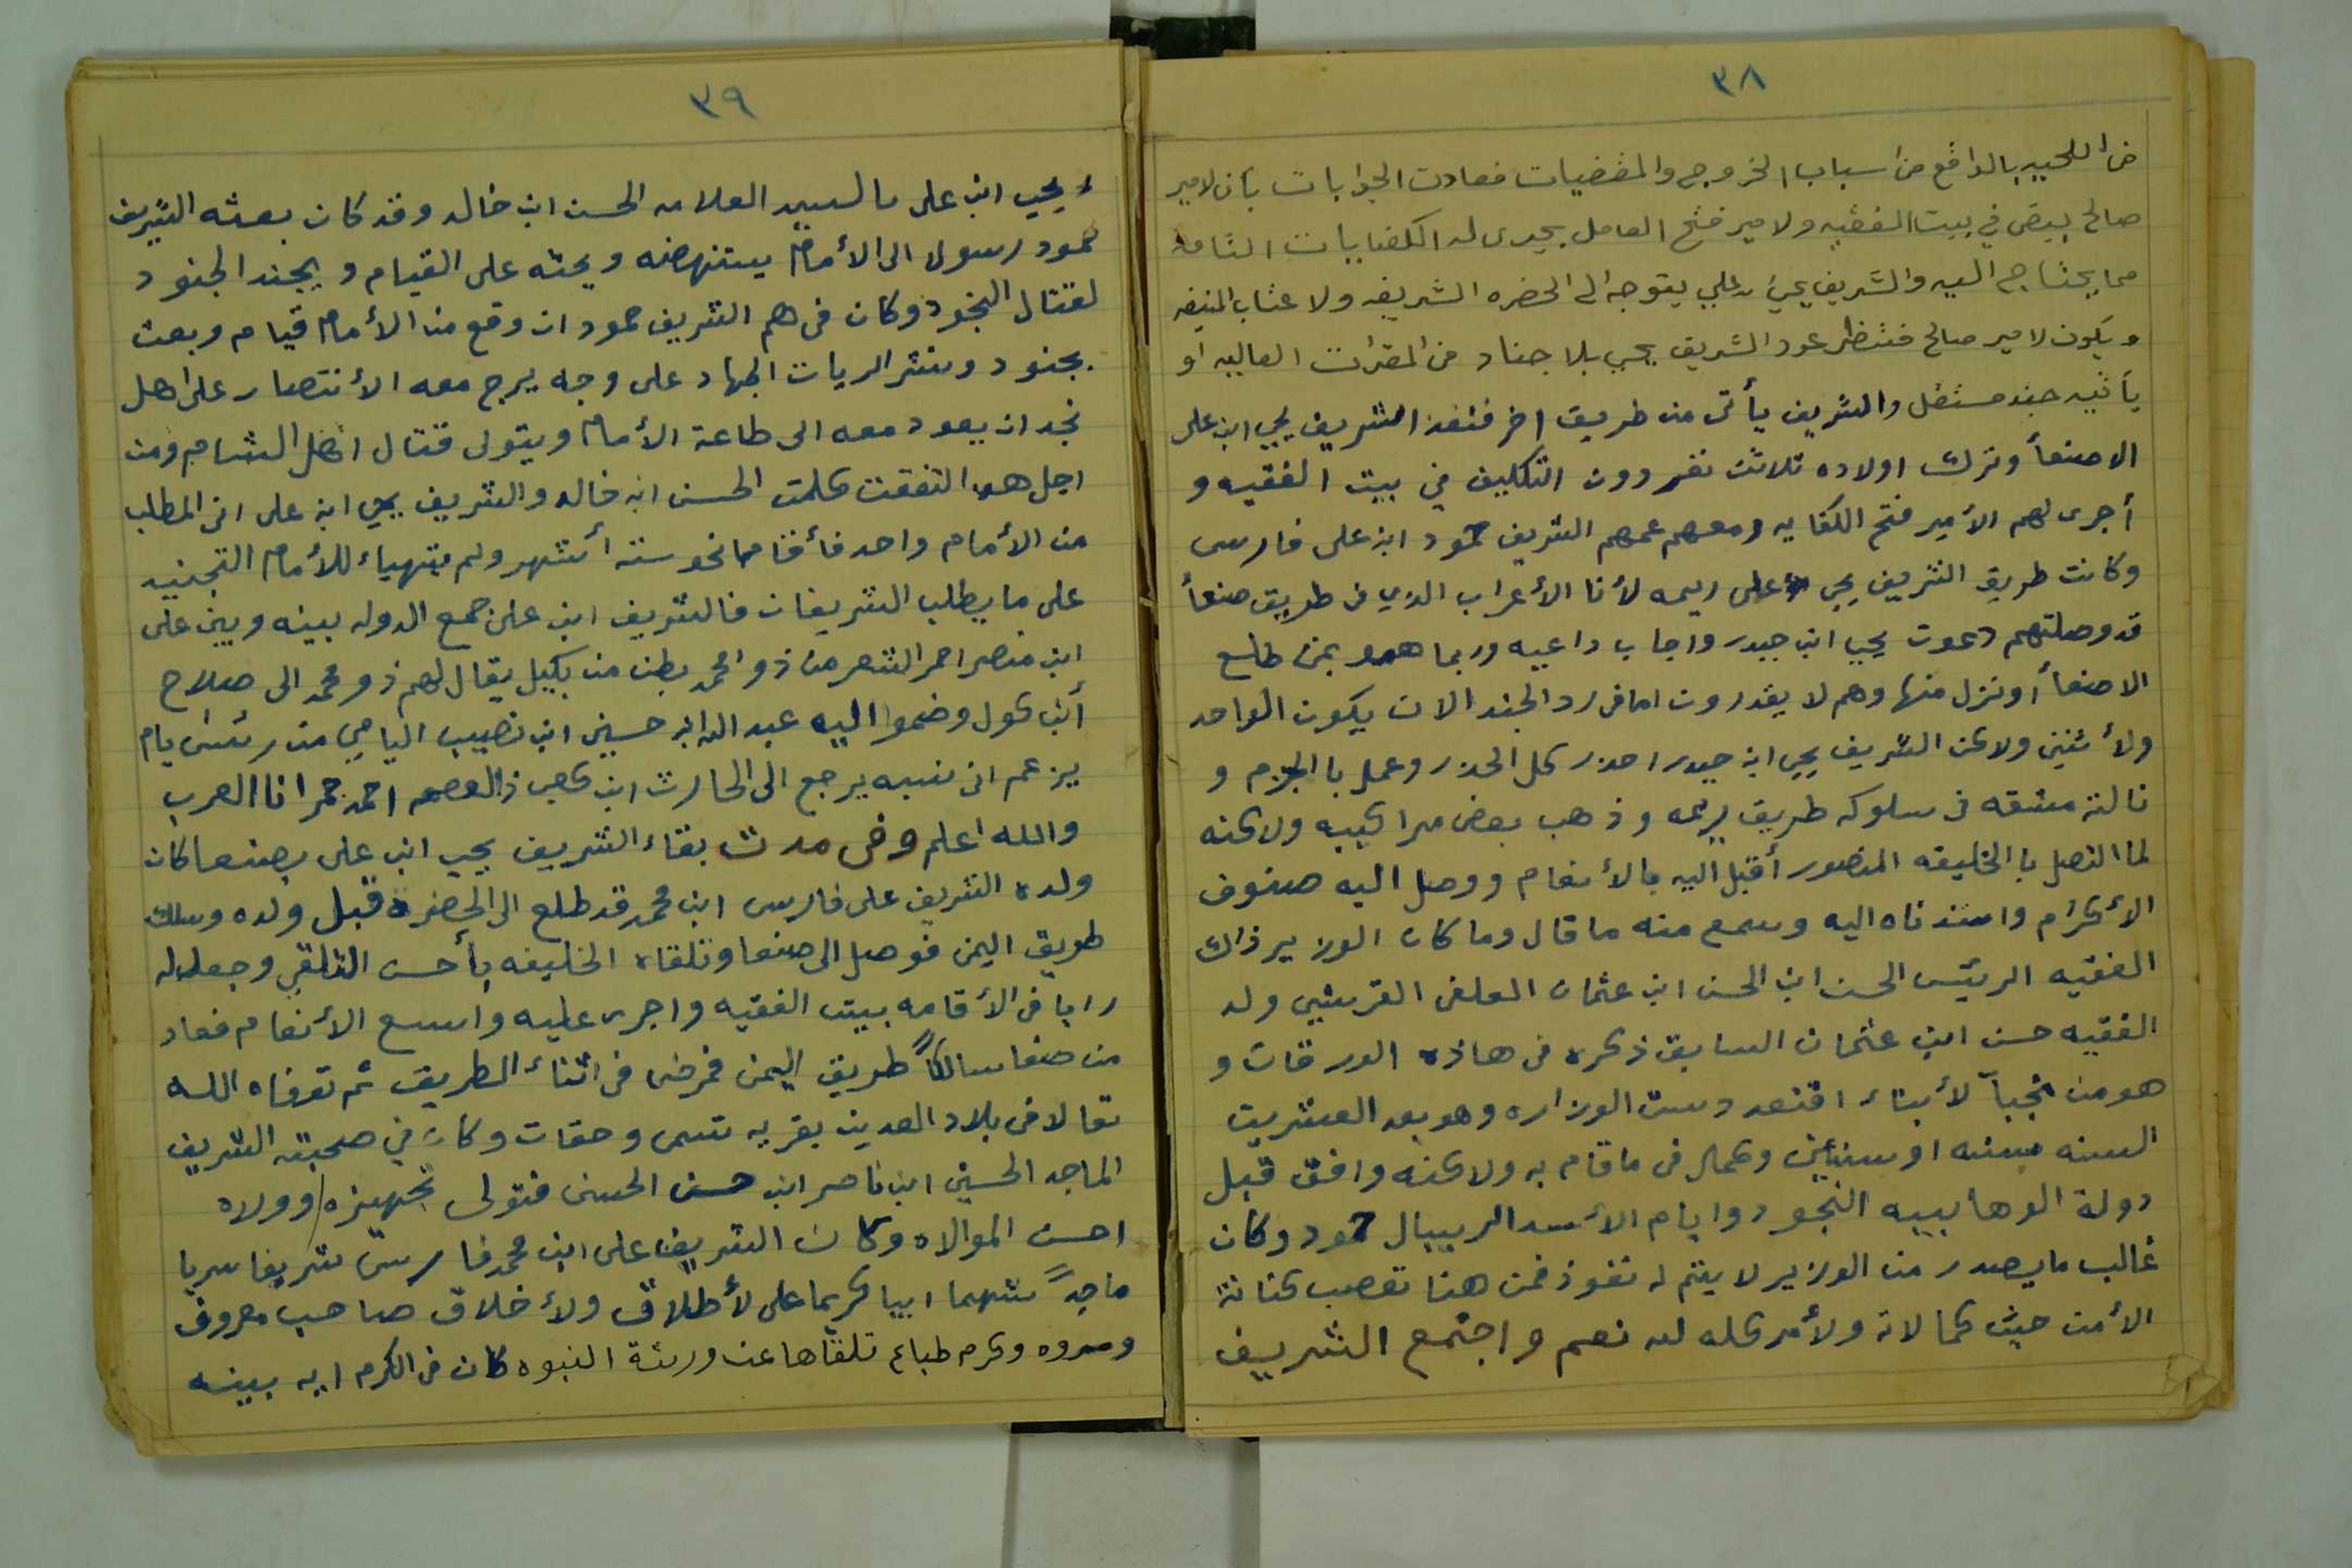 ٣٨
من اللحيه بالواقع من اسباب الخروج والمفضيات فعادت الجوابات بان لامير
صالح يبقى في بيت الفقيه ولامير فتح العامل يجرى له الكفايات التامه
مما يحتاج اليه والشريف يحي ابن علي يتوجه الى الحضره الشريفه ولا عتاب المنيفه
ويكون لامير صالح فتنظر عود الشريف يحي بلا جناد من المقرات العاليه او
يأتيه جند مستقل والشريف يأتى من طريق اخر فنفذ الشريف يحي ابن على
الا صنعأ وترك اولاده ثلاثت نفر دون التكليف في بيت الفقيه و
أجرى لهم الأمير فتح الكفايه ومعهم عمهم الشريف حمود ابن على فارس
وكانت طريق الشريف يحي على ريمه لأنا الأعراب الذي فى طريق صنعأ
قد وصلتهم دعوت يحي ابن حيدر واجاب داعيه وربما همو بمن طلع
الا صنعأ أو نزل منها وهم لا يقدرون اما فى رد الجند الان يكون الواحد
ولأثنين ولاكن الشريف يحي ابن حيدر احذر كل الحذر وعمل با الجزم و
نالته مشقه فى سلوكه طريق ريمه وذهب بعض مراكيبه ولاكنه
لما اتصل با الخليفه المنصور أقبل اليه بالأنعام ووصل اليه صنوف
الأكرام واستدناه اليه وسمع منه ما قال وما كان الوزير ذاك
الفقيه الرئيس الحسن ابن الحسن ابن عثمان العلفى القرشي ولد
الفقيه حسن ابن عثمان السابق ذكره فى هاذه الورقات و
هو من نجبآ لأبناء اقتعد دست الوزاره وهو بعد العشرين
السنه بسنه او سنتين وكمال فى ما قام به ولاكنه وافق قبل
دولة الوهابييه النجود وايام الأسد الريبال حمود وكان
غالب ما يصدر من الوزير لا يتم له نفوذ فمن هنا تعصب كنانة
الأمن حيث كمالاته ولأمر كله لله نعم واجتمع الشريف
٣٩
يحيى ابن على بالسيد العلامه الحسن ابن خالد وقد كان بعثه الشريف
حمود رسولا الى الأمام يستنهضه ويحثه على القيام ويجند الجنود
لقتال النجود وكان فى هم الشريف حمود ان وقع من الأمام قيام وبعث
بجنود ونشر الريات الجهاد على وجه يرج معه الأنتصار على اهل
نجد ان يعود معه الى طاعة الأمام ويتولى قتال اهل الشام ومن
اجل هو اتفقت كلمت الحسن ابن خالد والشريف يحي ابن على انى المطلب
من الأمام واحد فأقاما نحو ستة أشهر ولم يتهياء للأمام التجنيد
على ما يطلب الشريفان فالشريف ابن على جمع الدوله بينه وبين على
ابن منصر احمر الشعر من ذو محمد بطن من بكيل يقال لهم ذو محمد الى صلاح
أبن كول وضموا اليه عبد الله ابن حسين ابن نصيب اليامي من رئيس يام
يزعم انى نسبه يرجع الى الحارث ابن كعب ذالعصه احمد جمرانا العرب
والله اعلم وفى مدت بقاء الشريف يحيى ابن على بصنعا كان
ولده الشريف على فارس ابن محمد قد طلع الى الحضرة قبل ولده وسلك
طريق اليمن فوصل الى صنعا وتلقاه الخليفه بأحسن التلقي وجعل له
رايا فى الأقامه ببيت الفقيه واجرى عليه واسع الأنعام فعاد
من صنعا سالكاً طريق اليمن فمرض فى اثناء الطريق ثم توفاه الله
تعالا فى بلاد العدين بقريه تسمى وحقات وكان في صحبته الشريف
الماجد الحسين ابن ناصر ابن حسن الحسنى فتولى تجهيزه وولاه
احسن الموالاه وكان الشريف على ابن محمد فارس شريفا سريا
ماجداً شهما ابيا كريما على لأطلاق ولأخلاق صاحب معروف
ومروه وكرم طباع تلقاها عن ورثة النبوه كان فى الكرم ايه بينه